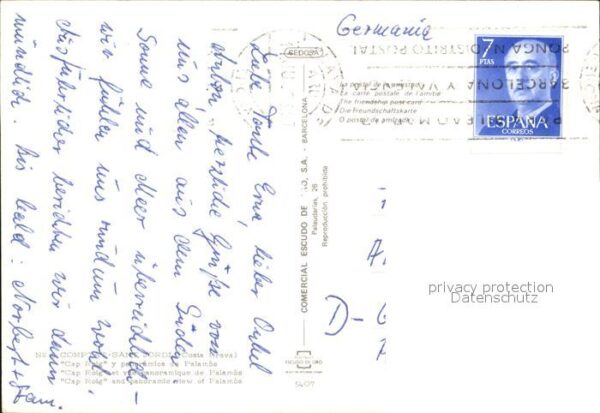 Germania
Liebe Tante Erna, lieber Onkel
Anton, herzliche Grüße von
uns allen aus dem Süden.
Sonne und Meer
wir fühlen uns rundum wohl.
Ausführlicher berichten wir dann
mündlich. Bis bald: Norbert +
CEDOSA
La postal de la amistad
La carte postale de l'amitié
The friendship post card
Die Freundschaftskarte
O postal da amizade
COMERCIAL ESCUDO DE ORO, S.A. - BARCELONA
Palaudarias, 26
Reproducción prohibida
7
PTAS
ESPAÑA
CORREOS
PONGA N. DISTRITO POSTAL
BARCELONA Y VALENCIA
D-
privacy protection
Datenschutz
(Costa Brava)
"Cap Roig" y panorámica de Palamós
"Cap Roig" et vue panoramique de Palamós
"Cap Roig" and panoramic view of Palamós
ESCUDO DE ORO
5407